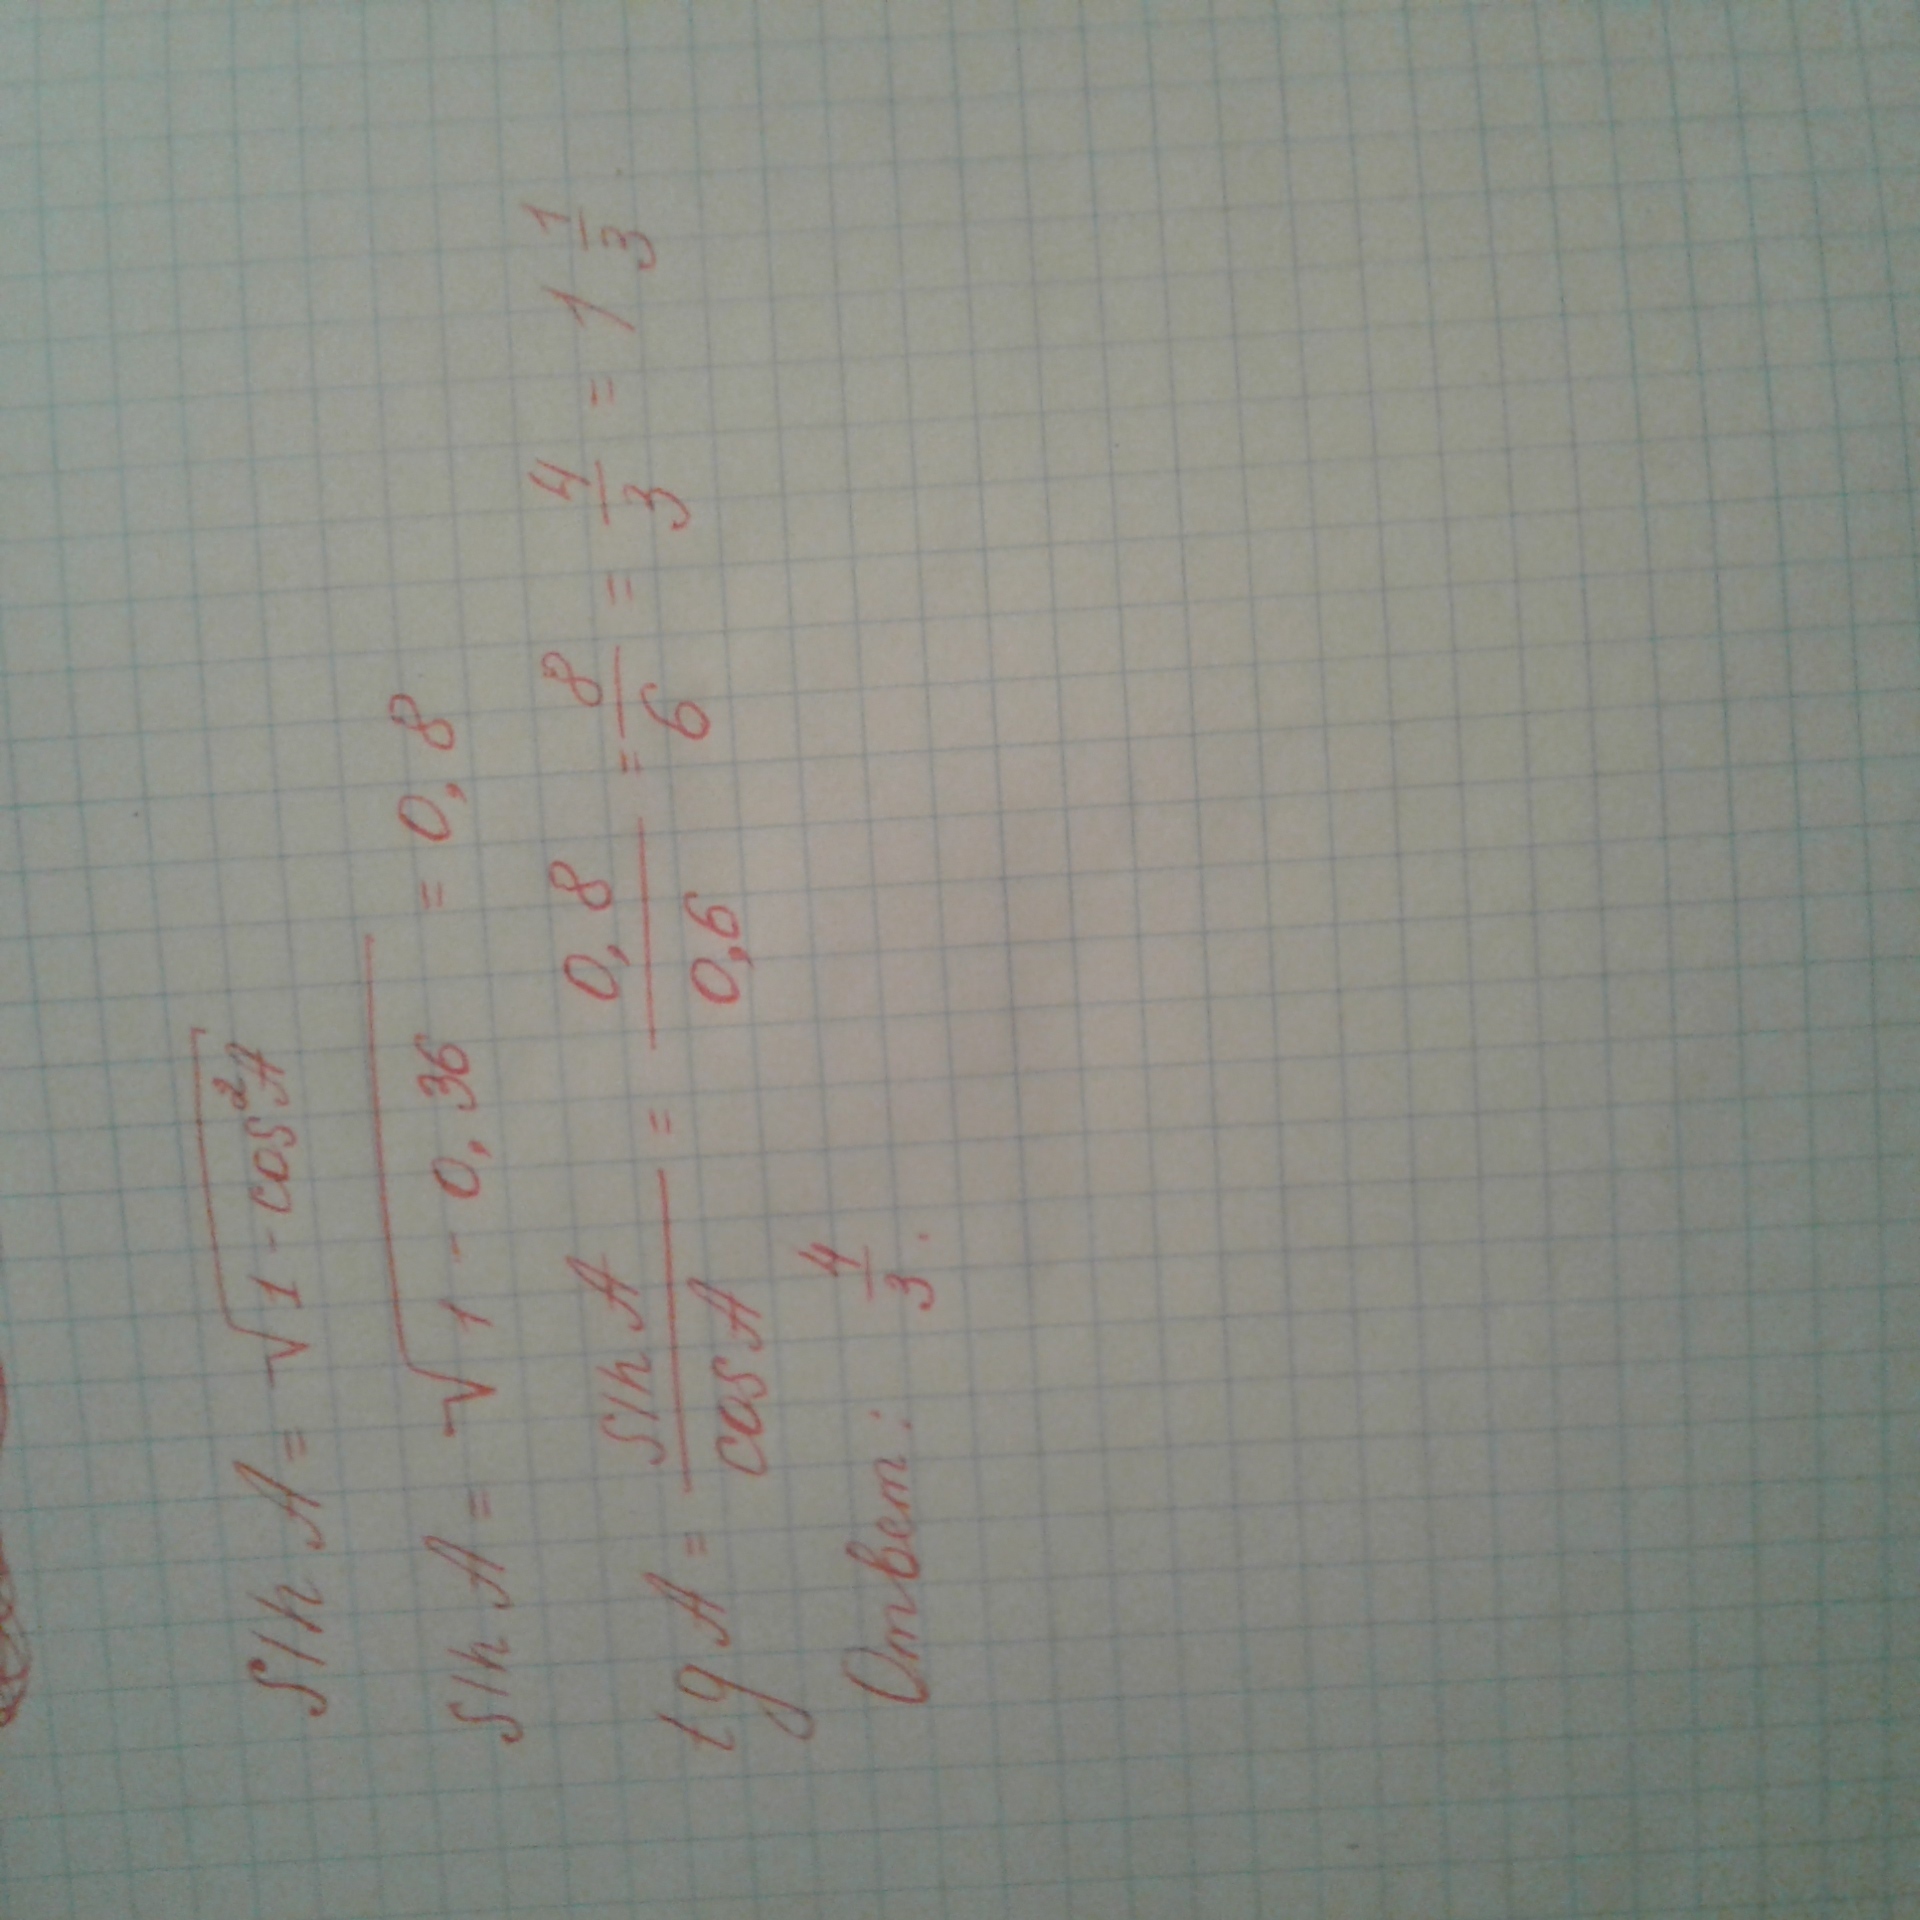 sin A = √1 - cos²A
sin A = √1 - 0,36 = 0,8
tg A = sin A / cos A = 0,8 / 0,6 = 8/6 = 4/3 = 1 1/3
Ответ: 4/3.